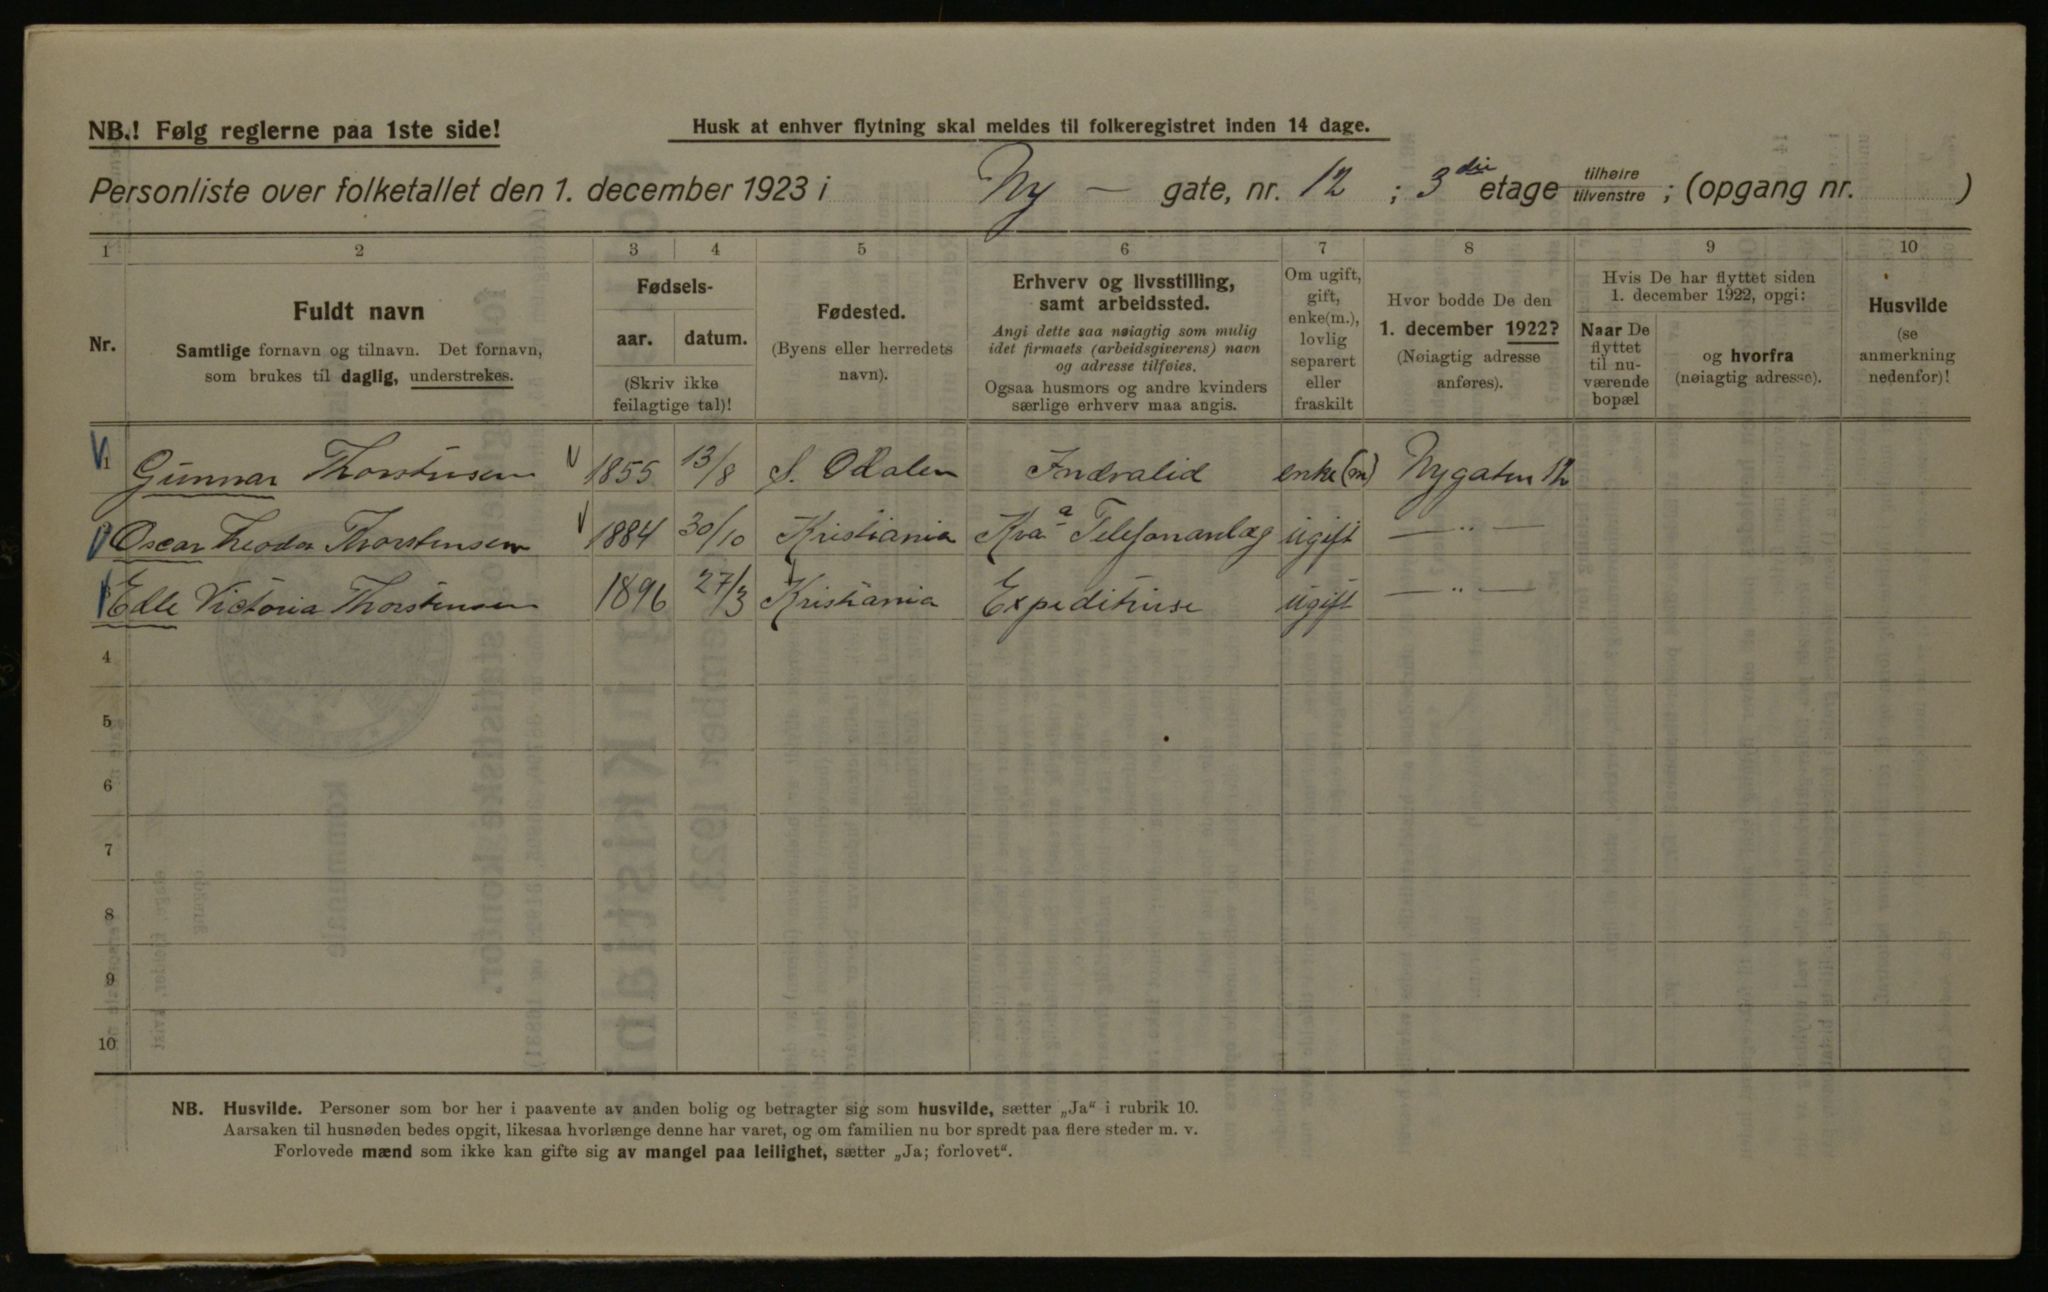 NB.! Følg reglerne paa 1ste side!
Husk at enhver flytning skal meldes til folkeregistret inden 14 dage.
Personliste over folketallet den 1. december 1923 i Ny — gate, nr. 12 ; 3 die etage tilhøire tilvenstre ; (opgang nr. )
1 2 3 4 5 6 7 8 9 10
Nr.
Fuldt navn
Samtlige fornavn og tilnavn. Det fornavn,
som brukes til daglig, understrekes.
Fødsels-
aar. datum.
(Skriv ikke
feilagtige tal)!
Fødested.
(Byens eller herredets
navn).
Erhverv og livsstilling,
samt arbeidssted.
Angi dette saa nøiagtig som mulig
idet firmaets (arbeidsgiverens) navn
og adresse tilføies.
Ogsaa husmors og andre kvinders
særlige erhverv maa angis.
Om ugift,
gift,
enke(m.),
lovlig
separert
eller
fraskilt
Hvor bodde De den
1. december 1922?
(Nøiagtig adresse
anføres).
Hvis De har flyttet siden
1. december 1922, opgi:
Naar De
flyttet
til nu-
værende
bopæl
og hvorfra
(nøiagtig adresse).
Husvilde
(se
anmerkning
nedenfor)!
1 Gunnar Thorstensen 1855 13/8 S. Odalen enke(m) Nygaten 12
Oscar Theodor Thorstensen 1884 30/10 Kristiania Kra Telefonanlæg ugift — " —
Edle Victoria Thorstensen 1896 27/3 Kristiania Expeditrise ugift — " —
4
5
6
7
8
9
10
NB. Husvilde. Personer som bor her i paavente av anden bolig og betragter sig som husvilde, sætter „Ja“ i rubrik 10.
Aarsaken til husnøden bedes opgit, likesaa hvorlænge denne har varet, og om familien nu bor spredt paa flere steder m. v.
Forlovede mænd som ikke kan gifte sig av mangel paa leilighet, sætter „Ja; forlovet“.